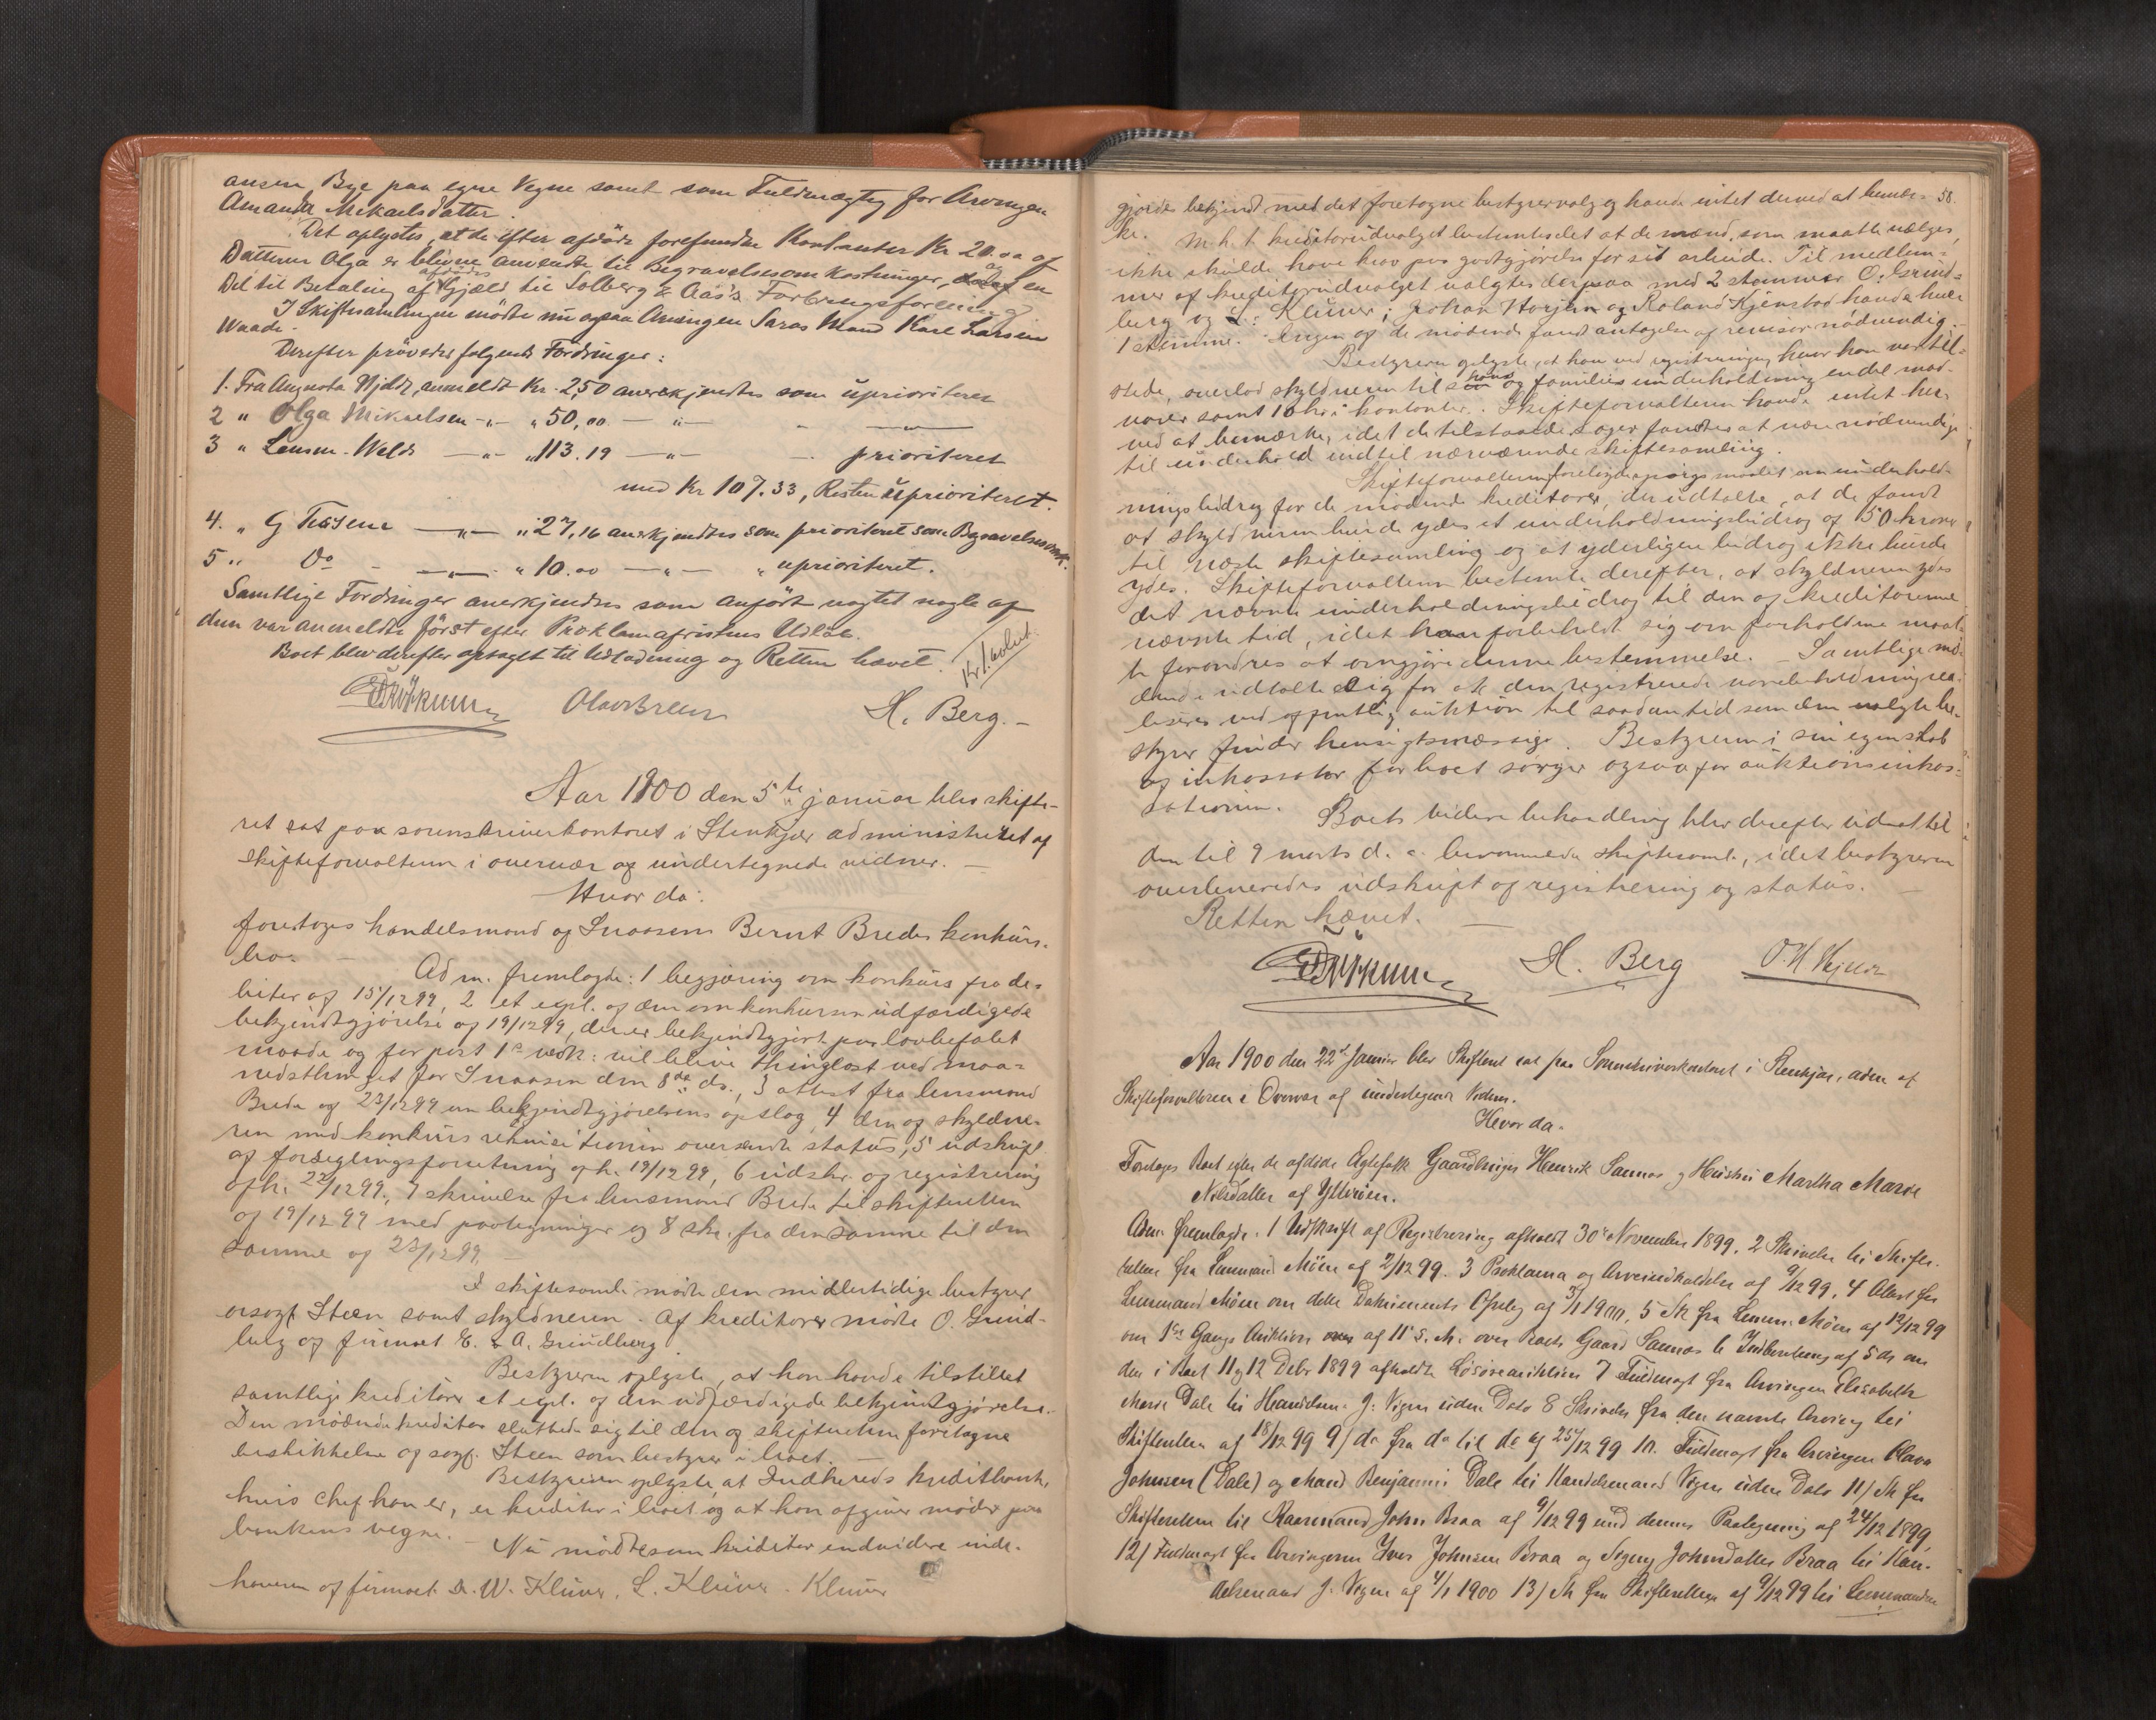 ansen Bye paa egne Vegne samt som Fuldmægtig for Arvingen
Amanda Mikaelsdatter.
Det oplystes, at de efter afdöde forefundne Kontanter Kr 20.00 af
Datteren Olga er blevne anvendte til Begravelsesomkostninger, en
Del til Betaling af afdødes Gjæld til Solberg & Aas's Forbrugsforening
I Skiftesamlingen mödte nu ogsaa Arvingen Saras Mand Karl Larsen
Waade.
Derefter prövedes følgende Fordringer:
1. Fra Augusta Hjelde, anmeldt Kr. 2,50 anerkjendtes som uprioriteret
2 " Olga Mikaelsen -"- " 50,00 — " —
3 " Lensm. Welde —"— " 113.19 —"— prioriteret
med Kr 107.33, Resten uprioriteret.
4. " G Tessem —"— " 27,16 anerkjendtes som prioriteret som Begravelsesomk.
5 " Do —"— " 10.00 —"— " uprioriteret.
Samtlige Fordringer anerkjendtes som anfört uagtet nogle af
dem var anmeldte först efter Proklamafristens Udlöb.
Boet blev derefter optaget til Udlodning og Retten hævet.
H. Berg.
Aar 1900 den 5te januar blev skifte-
ret sat paa sorenskriverkontoret i Stenkjær administreret af
skifteforvalteren i overvær af undertegnede vidner.
Hvor da:
foretoges handelsmand og Snaasen Bernt Bredes konkurs-
bo.
Adm. fremlagte: 1 begjæring om konkurs fra de-
bitor af 15/12 99, 2 et expl. af den om konkursen udfærdigede
bekjendtgjörelse af 19/12 99, der er bekjendtgjort paa lovbefalet
maade og for post 1s vedk: vil blive thinglæst ved maa-
nedsthinget for Snaasen den 8de ds., 3 attest fra lensmand
Brede af 23/12 99 om bekjendtgjörelsens opslag, 4 den af skyldne-
ren med konkursrekvisitionen oversendte status, 5 udskrift
af forseglingsforretning afh. 19/12 99, 6 udskr. af registrering
afh. 22/12 99, 7 skrivelse fra lensmand Brede til skifteretten
af 19/12 99 med paategninger og 8 skr. fra den samme til den
samme af 23/12 99.
I skiftesaml. mödte den midlertidige bestyrer
orsagf. Steen samt skyldneren. Af kreditorer mödte O. Grind-
berg og firmaet E. & A. Grindberg
Bestyreren oplyste, at han havde tilstillet
samtlige kreditorer et expl. af den udfærdigede bekjendtgjörelse.
Den mödende kreditor sluttede sig til den af skifteretten foretagne
beskikkelse af sagf. Steen som bestyrer i boet.
Bestyreren oplyste, at Indherreds kreditbank,
hvis chef han er, er kreditor i boet og at han afgiver möde paa
bankens vegne.
Nu mödte som kreditor endvidere inde-
haveren af firmaet W. Klüver, L. Klüver. Klüver
58.
gjordes bekjendt med det foretagne bestyrervalg og havde intet derved at bemær-
ke. M.h.t. kreditorudvalget bestemtes det at de mænd, som maatte vælges,
ikke skulde have krav paa godtgjörelse for sit arbeide. Til medlem-
mer af kreditorudvalget valgtes derpaa med 2 stemmer O. Grind-
berg og L. Klüver; Johan Horjem og Roland Kjenstad havde hver
1 stemme. Ingen af de mödende fandt antagelse af revisor nödvendig.
Bestyreren oplyste, at han ved registreringen hvor han var til-
stede, overlod skyldneren til hans og families underholdning endel mad-
varer samt 10 kr. i kontanter. Skifteforvalteren havde intet her-
ved at bemærke, idet de tilstaaede sager fandtes at være nödvendige
til underhold indtil nærværende skiftesamling.
Skifteforvalteren forelagde spörgsmaalet om underhold-
ningsbidrag for de mödende kreditorer, der udtalte, at de fandt
at skyldneren burde ydes et underholdningsbidrag af 50 kroner
til næste skiftesamling og at yderligere bidrag ikke burde
ydes. Skifteforvalteren bestemte derefter, at skyldneren ydes
det nævnte underholdningsbidrag til den af kreditorerne
nævnte tid, idet han forbeholdt sig om forholdene maat-
te forandres at omgjöre denne bestemmelse. — Samtlige mö-
dende udtalte sig for at den registrerede varebeholdning rea-
liseres ved offentlig auktion til saadan tid som den valgte be-
styrer finder hensigtsmæssig. Bestyreren i sin egenskab
af inkassator for boet sørger ogsaa for auktionsinkas-
sationen.
Boets videre behandling blev derefter udsat til
den til 9 marts d. a. berammede skiftesaml., idet bestyreren
overleveredes udskrift af registrering og status.
Retten hævet.
H. Berg
Aar 1900 den 22de Januar blev Skifteret sat paa Sorenskriverkontoret i Stenkjær, adm. af
Skifteforvalteren i Overvær af undertegnede Vidner.
Hvor da:
Foretoges Boet efter de afdöde Ægtefolk Gaardbruger Henrik Saunes og Hustru Martha Marie
Nilsdatter af Ytteröen.
Adm. fremlagde: 1 Udskrift af Registrering afholdt 30te November 1899, 2 Skrivelse til Skifte-
retten fra Lensmand Möen af 2/12 99. 3 Proklama og Arveindkaldelse af 9/12 99, 4 Attest fra
Lensmand Möen om dette Dokuments Opslag af 3/1 1900, 5 Sk fra Lensm. Möen af 12/12 99
om 1ste Gangs Auktion af 11 s. M. over Boets Gaard Saunes 6 Indberetning af 5 ds om
den i Boet 11 og 12 Debr 1899 afholdte Løsøreauktion 7 Fuldmagt fra Arvingen Elisabeth
Marie Dale til Handelsm. J. Vigen uden Dato 8 Skrivelse fra den nævnte Arving til
Skifteretten af 18/12 99 9/ do fra do til do af 25/12 99 10. Fuldmagt fra Arvingen Olava
Johnsen (Dale) og Mand Benjamin Dale til Handelsmand Vigen uden Dato 11/ Sk fra
Skifteretten til Gaardmand John Braa af 9/12 99 med dennes Paategning af 24/12 1899,
12/ Fuldmagt fra Arvingerne Iver Johnsen Braa og Signy Johnsdatter Braa til Han-
delsmand J. Vigen af 4/1 1900 13/ Sk fra Skifteretten af 9/12 99 til Lensmanden